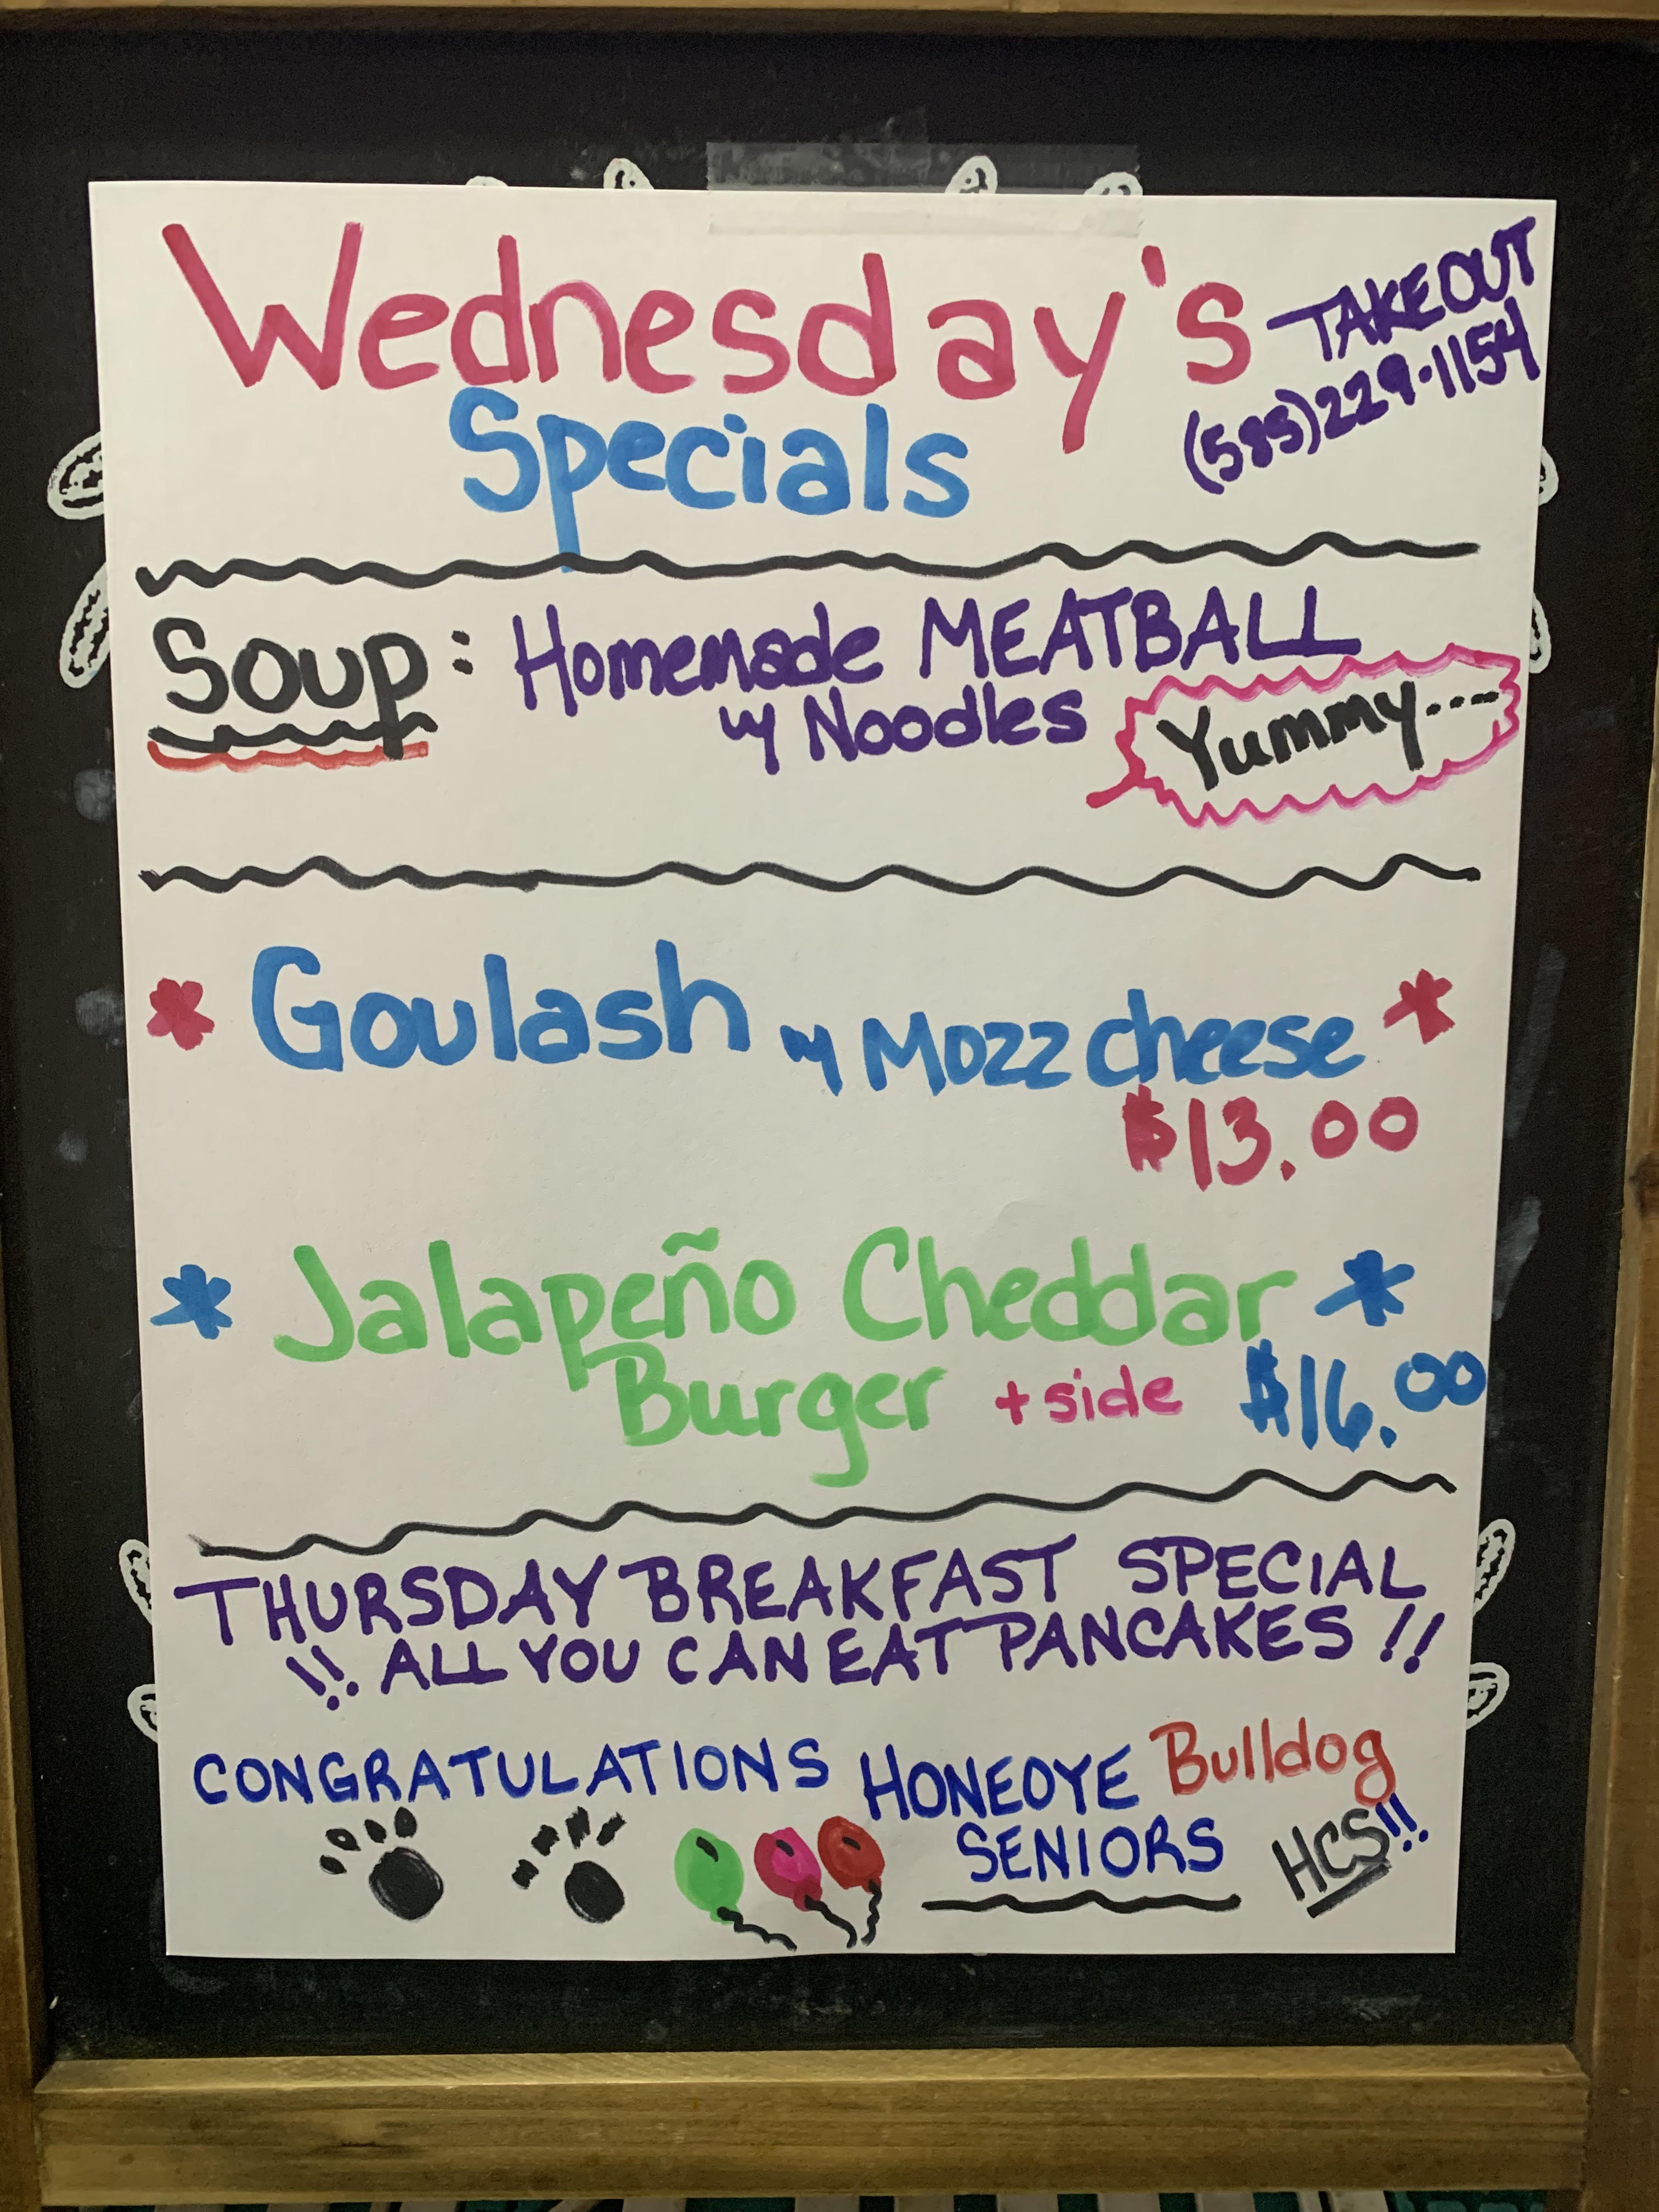 Wednesday's
TAKE OUT
(585)229-1154
Specials
Soup: Homemade MEATBALL
w/ Noodles
Yummy----
* Goulash w/ Mozz cheese *
$13.00
* Jalapeño Cheddar *
Burger + side $16.00
THURSDAY BREAKFAST SPECIAL
!! ALL YOU CAN EAT PANCAKES !!
CONGRATULATIONS HONEOYE Bulldog
SENIORS HCS!!